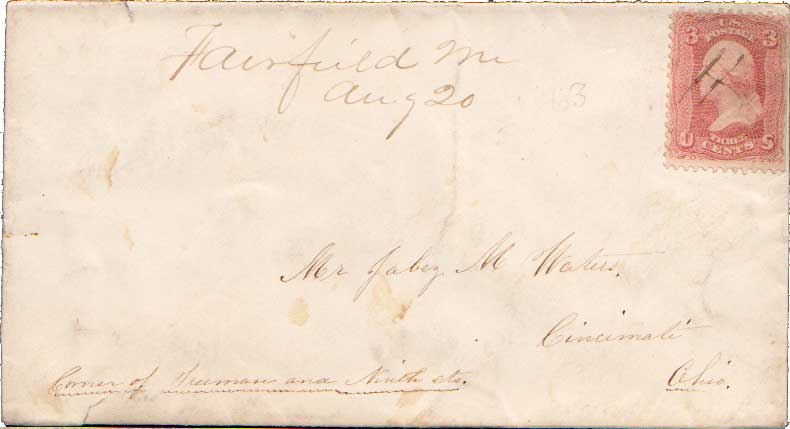 Fairfield Me
Aug 20
63
3 U.S. 3
POSTAGE
U THREE S
CENTS
Mr Jabez M Waters.
Cincinnati
Corner of Freeman and Ninth sts.
Ohio.